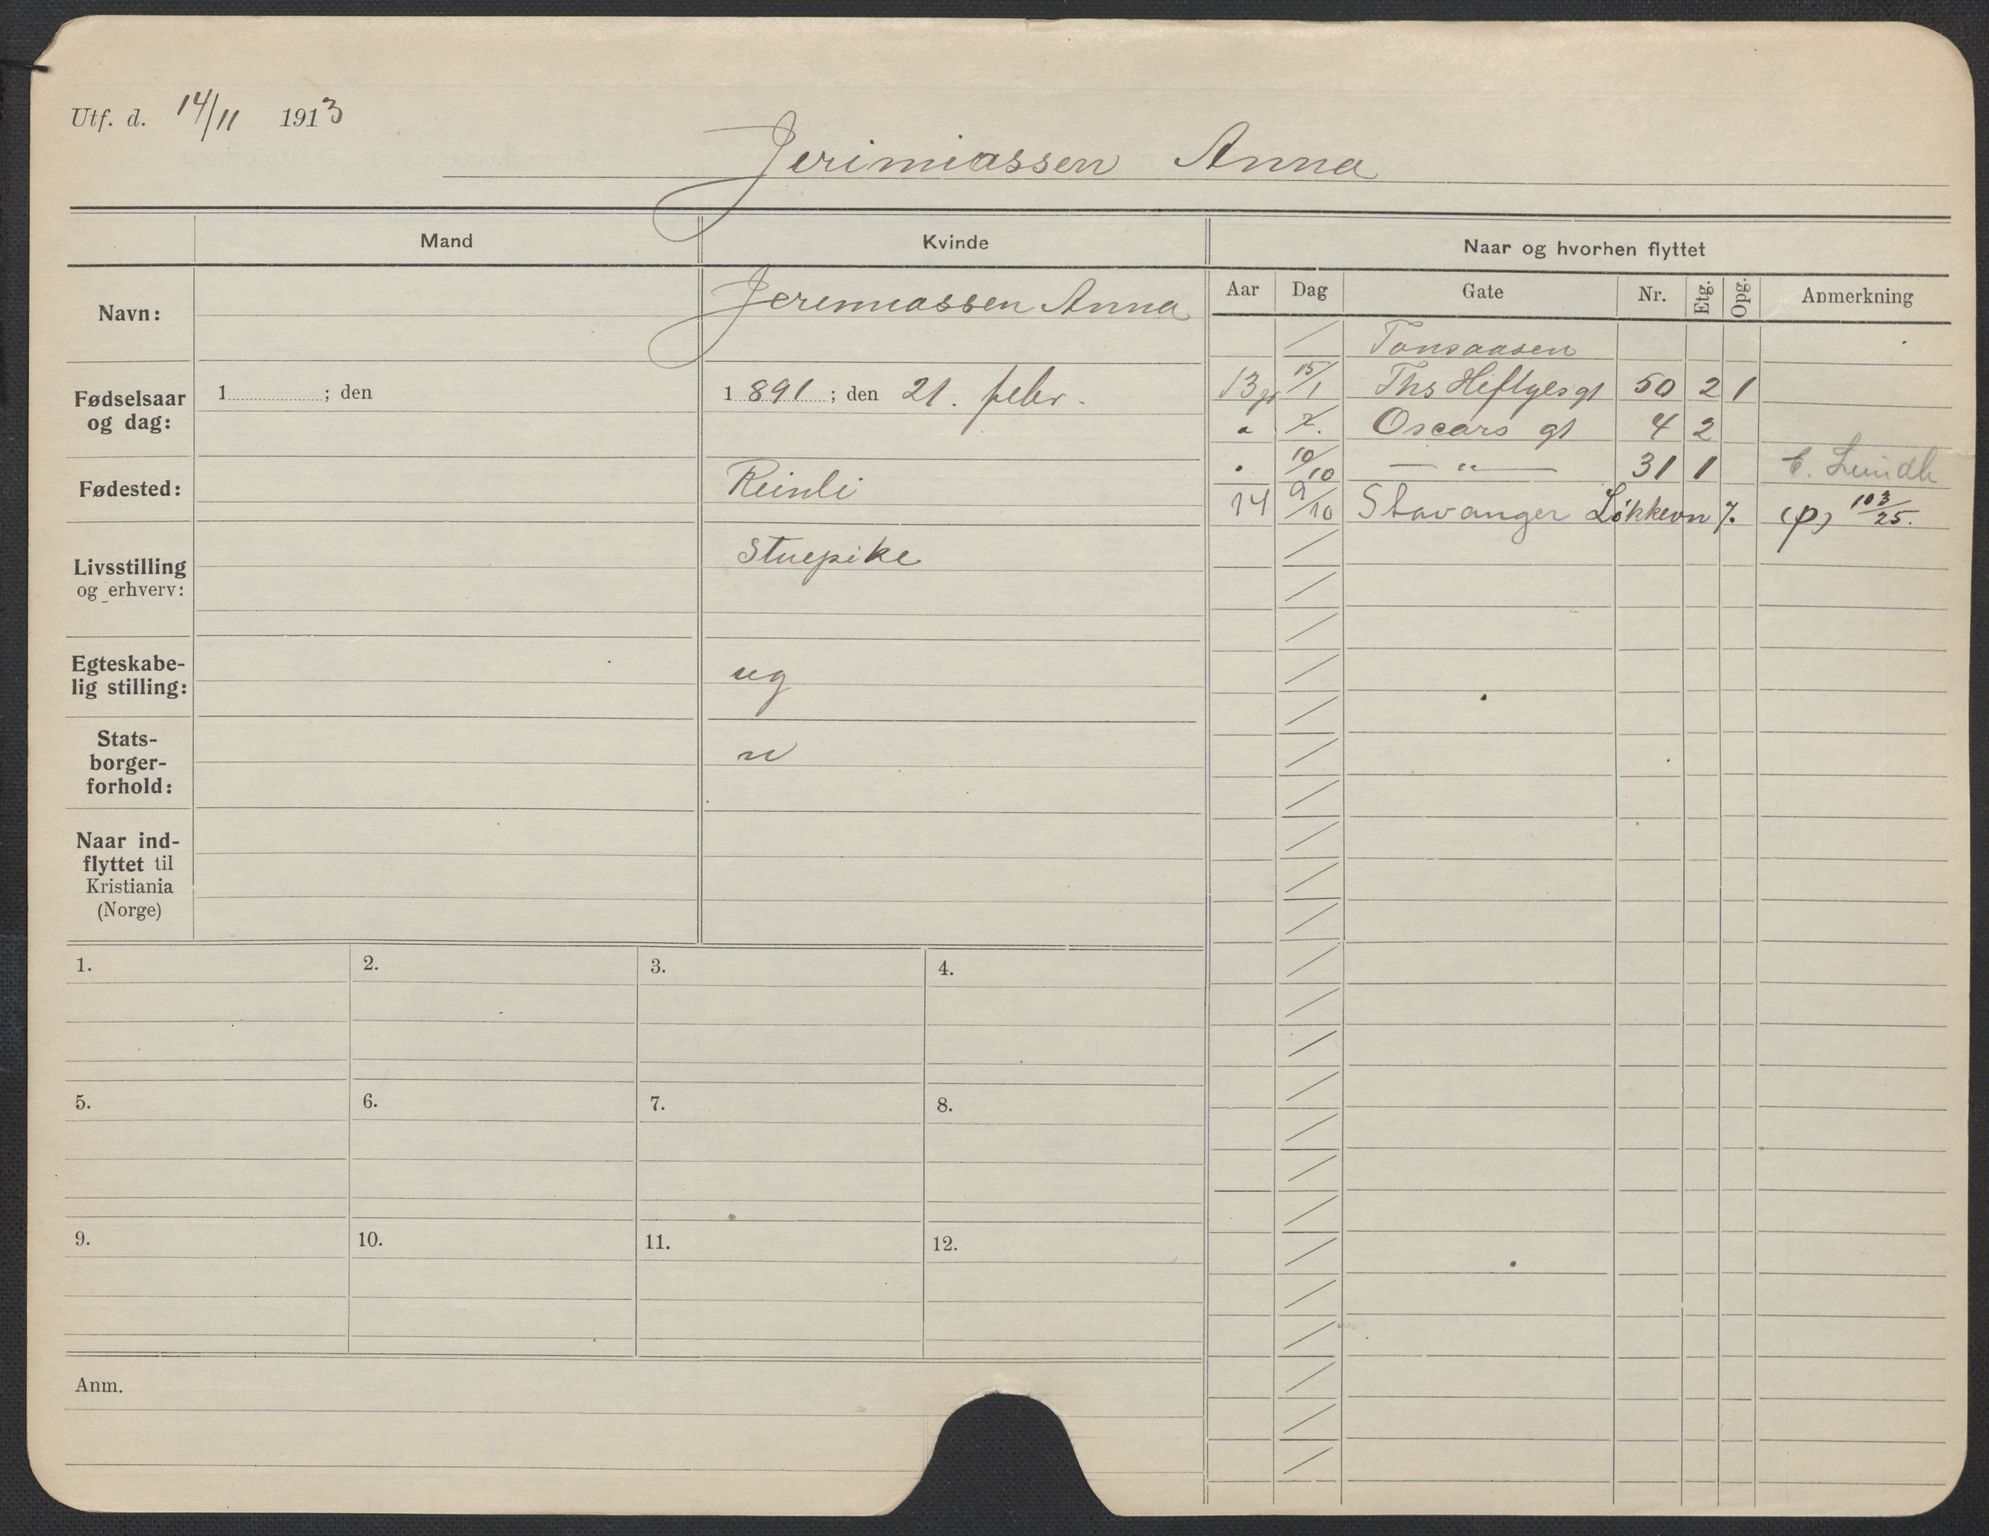 Utf. d. 14/11 1913
Jerimiassen Anna
Mand
Kvinde
Naar og hvorhen flyttet
Aar Dag Gate Nr. Etg. Opg. Anmerkning
Navn:
Jeremiassen Anna
Fødselsaar
og dag:
1 ; den
1 891 ; den 21. febr.
Fødested:
Reinli
Livsstilling
og erhverv:
Stuepike
Egteskabe-
lig stilling:
ug
Stats-
borger-
forhold:
n
Naar ind-
flyttet til
Kristiania
(Norge)
Tonsaasen
13 15/1 Ths Heftyesgt 50 2 1
" Oscars gt 4 2
" 10/10 — " — 31 1 C. Lundh
14 9/10 Stavanger Løkkevn 7. (P) 103/25.
1. 2. 3. 4.
5. 6. 7. 8.
9. 10. 11. 12.
Anm.